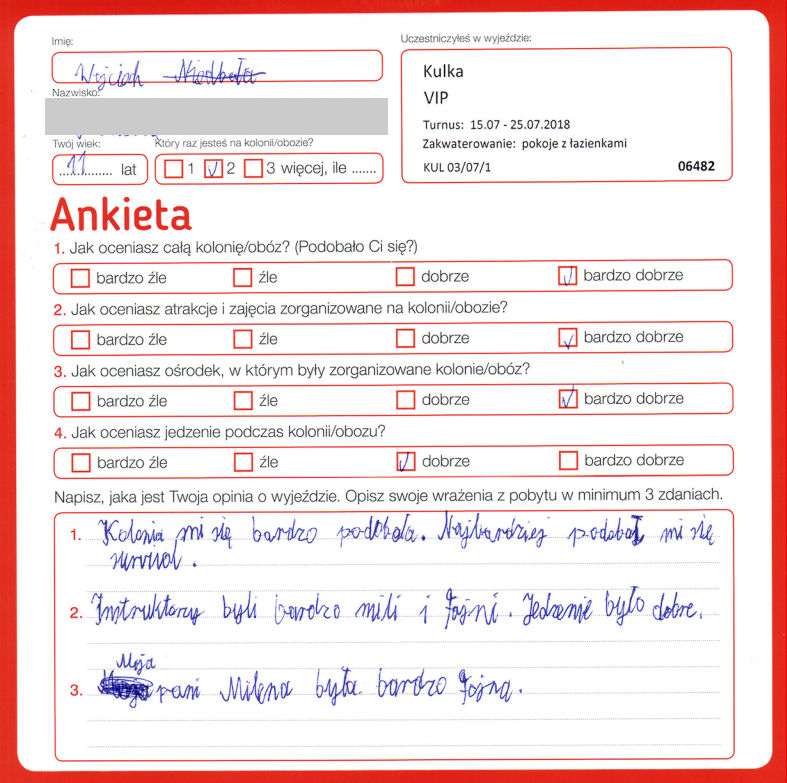 Imię:
Wojciech Niedbała
Nazwisko:
Twój wiek:
11 lat
Który raz jesteś na kolonii/obozie?
1 2 3 więcej, ile .......
Uczestniczyłeś w wyjeździe:
Kulka
VIP
Turnus: 15.07 - 25.07.2018
Zakwaterowanie: pokoje z łazienkami
KUL 03/07/1 06482
Ankieta
1. Jak oceniasz całą kolonię/obóz? (Podobało Ci się?)
bardzo źle źle dobrze bardzo dobrze
2. Jak oceniasz atrakcje i zajęcia zorganizowane na kolonii/obozie?
bardzo źle źle dobrze bardzo dobrze
3. Jak oceniasz ośrodek, w którym były zorganizowane kolonie/obóz?
bardzo źle źle dobrze bardzo dobrze
4. Jak oceniasz jedzenie podczas kolonii/obozu?
bardzo źle źle dobrze bardzo dobrze
Napisz, jaka jest Twoja opinia o wyjeździe. Opisz swoje wrażenia z pobytu w minimum 3 zdaniach.
1. Kolonia mi się bardzo podobała. Najbardziej podobał mi się
survival.
2. Instruktorzy byli bardzo mili i fajni. Jedzenie było dobre.
Moja
3. pani Milena była bardzo fajna.